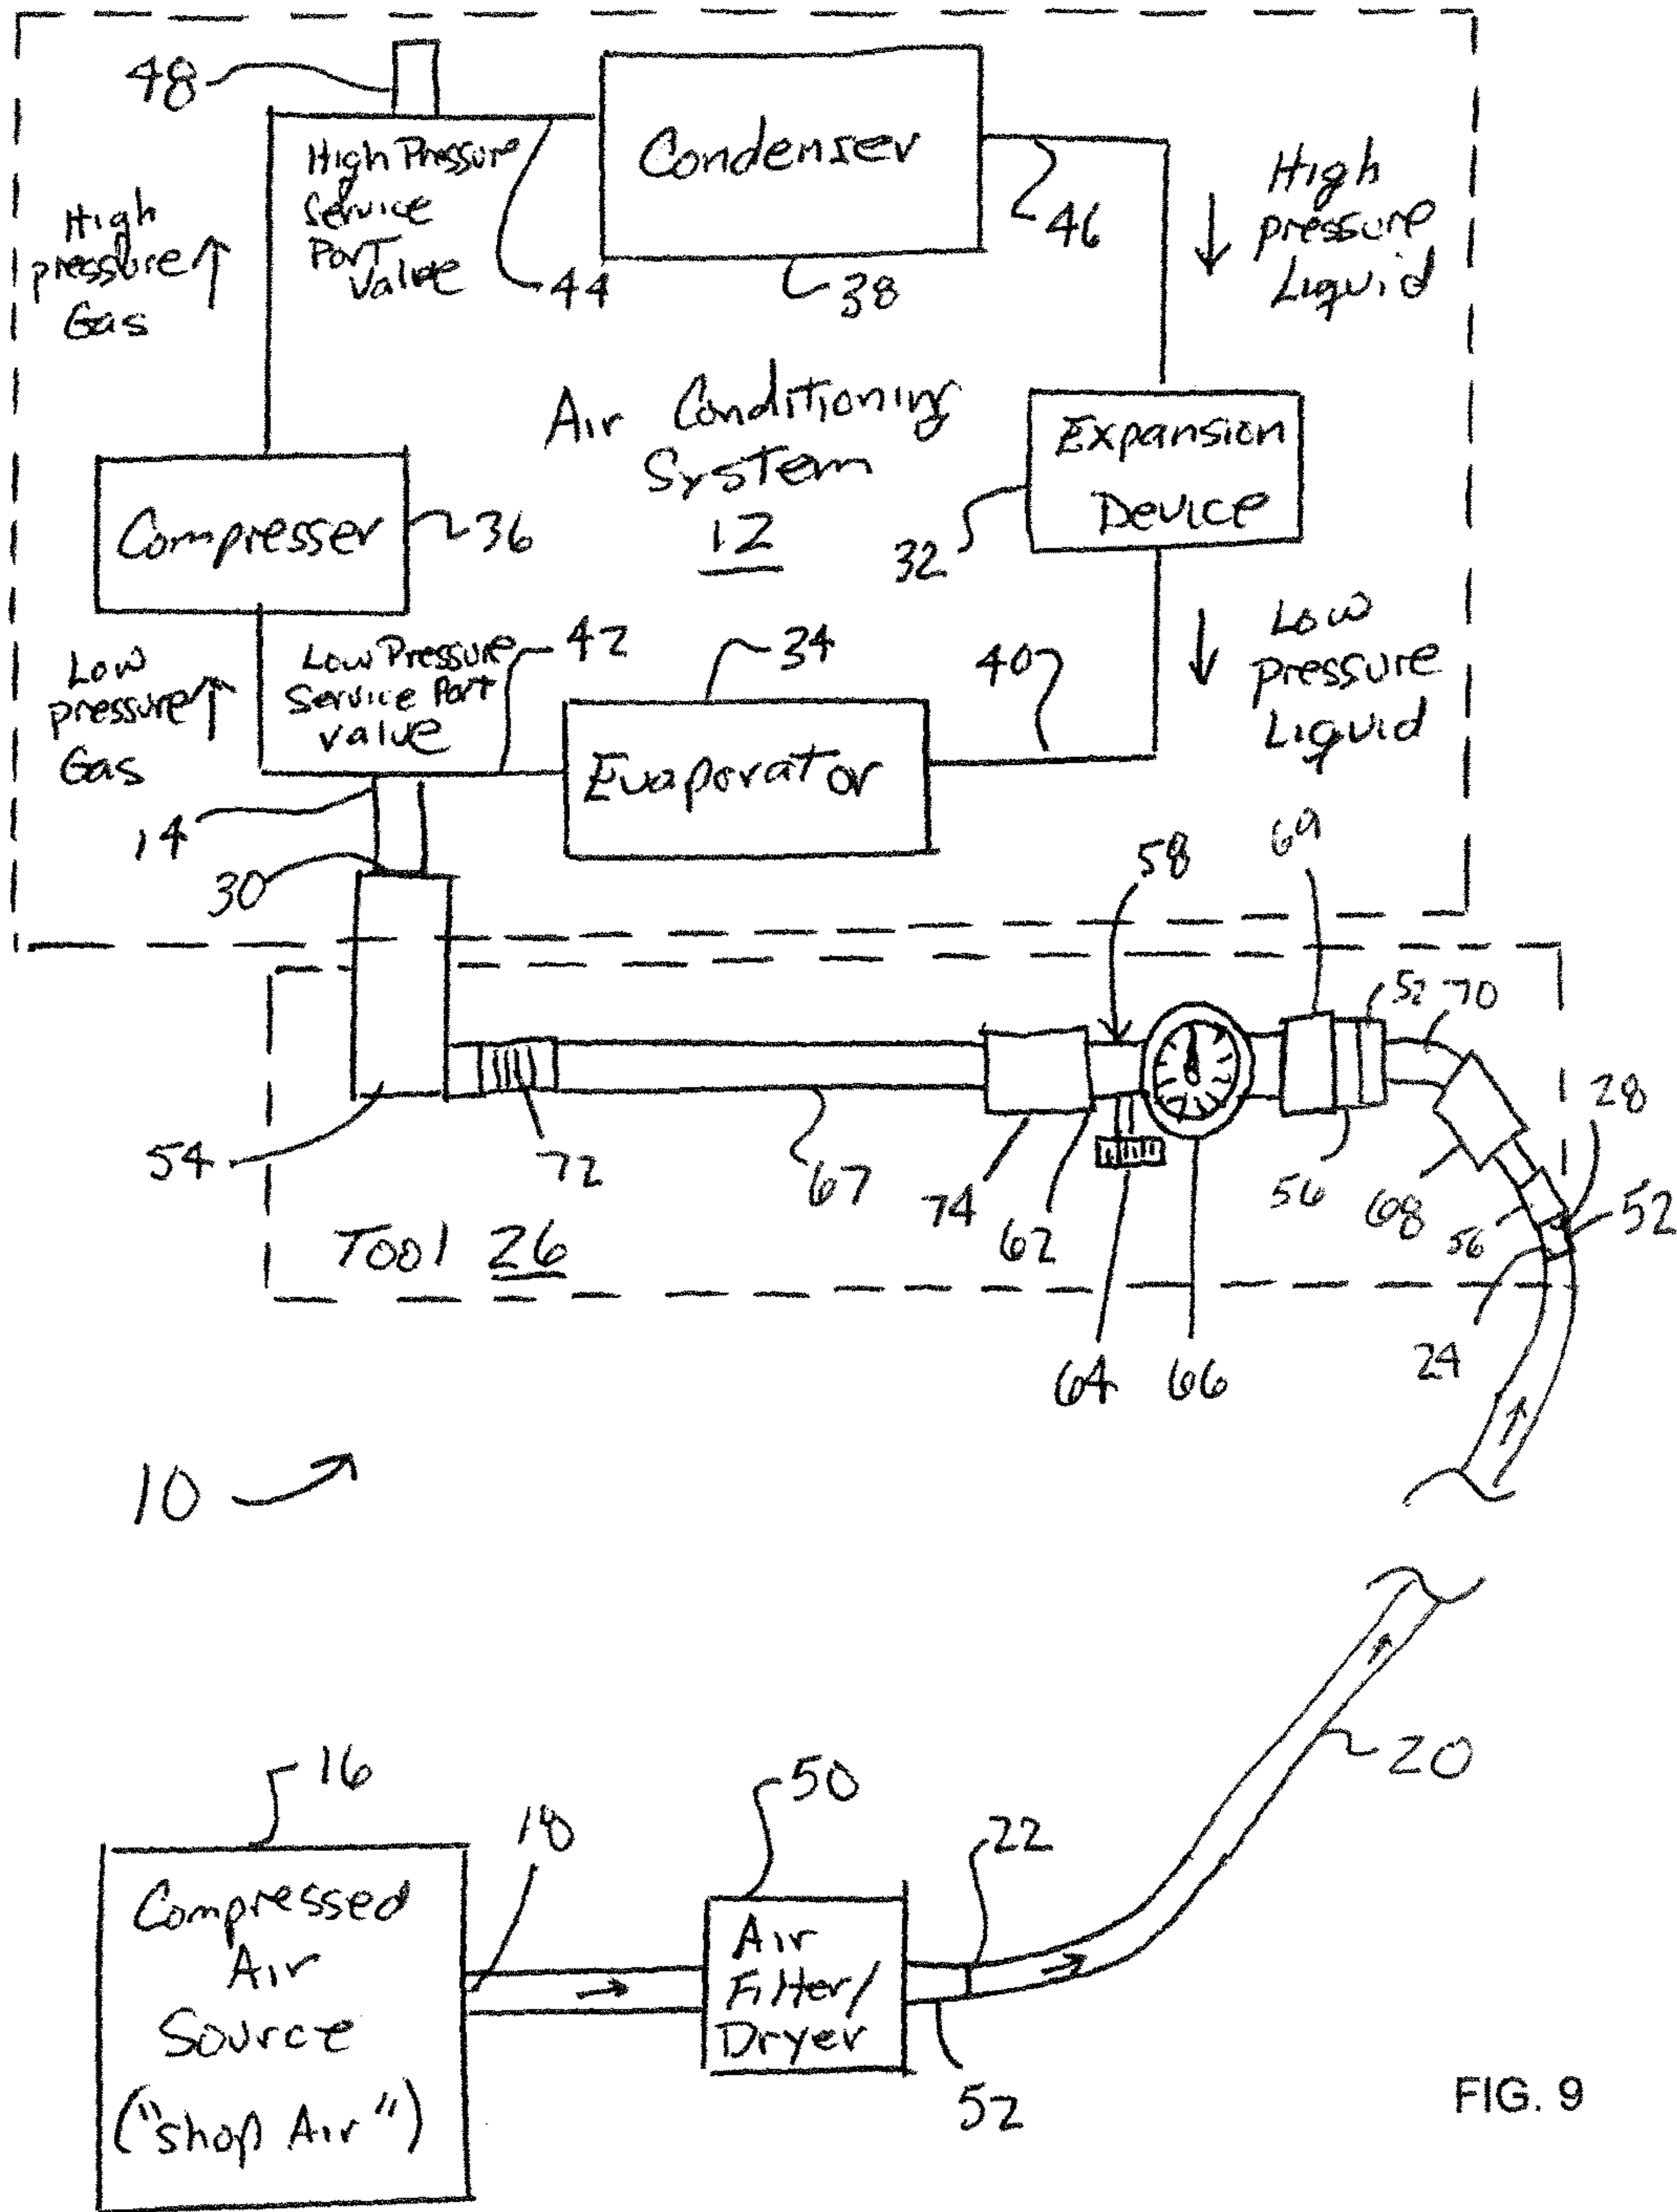 48
High Pressure
Service
Port
Valve
44
Condenser
38
46
High
pressure
Liquid
High
pressure
Gas
Air Conditioning
System
12
Compresser
36
Expansion
Device
32
Low
pressure
Gas
Low Pressure
Service Port
valve
42
34
40
Low
pressure
Liquid
Evaporator
14
30
58
69
52
70
28
54
72
67
74
62
56
68
56
52
Tool 26
64
66
24
10
20
16
18
50
22
Compressed
Air
Source
("shop Air")
Air
Filter/
Dryer
52
FIG. 9